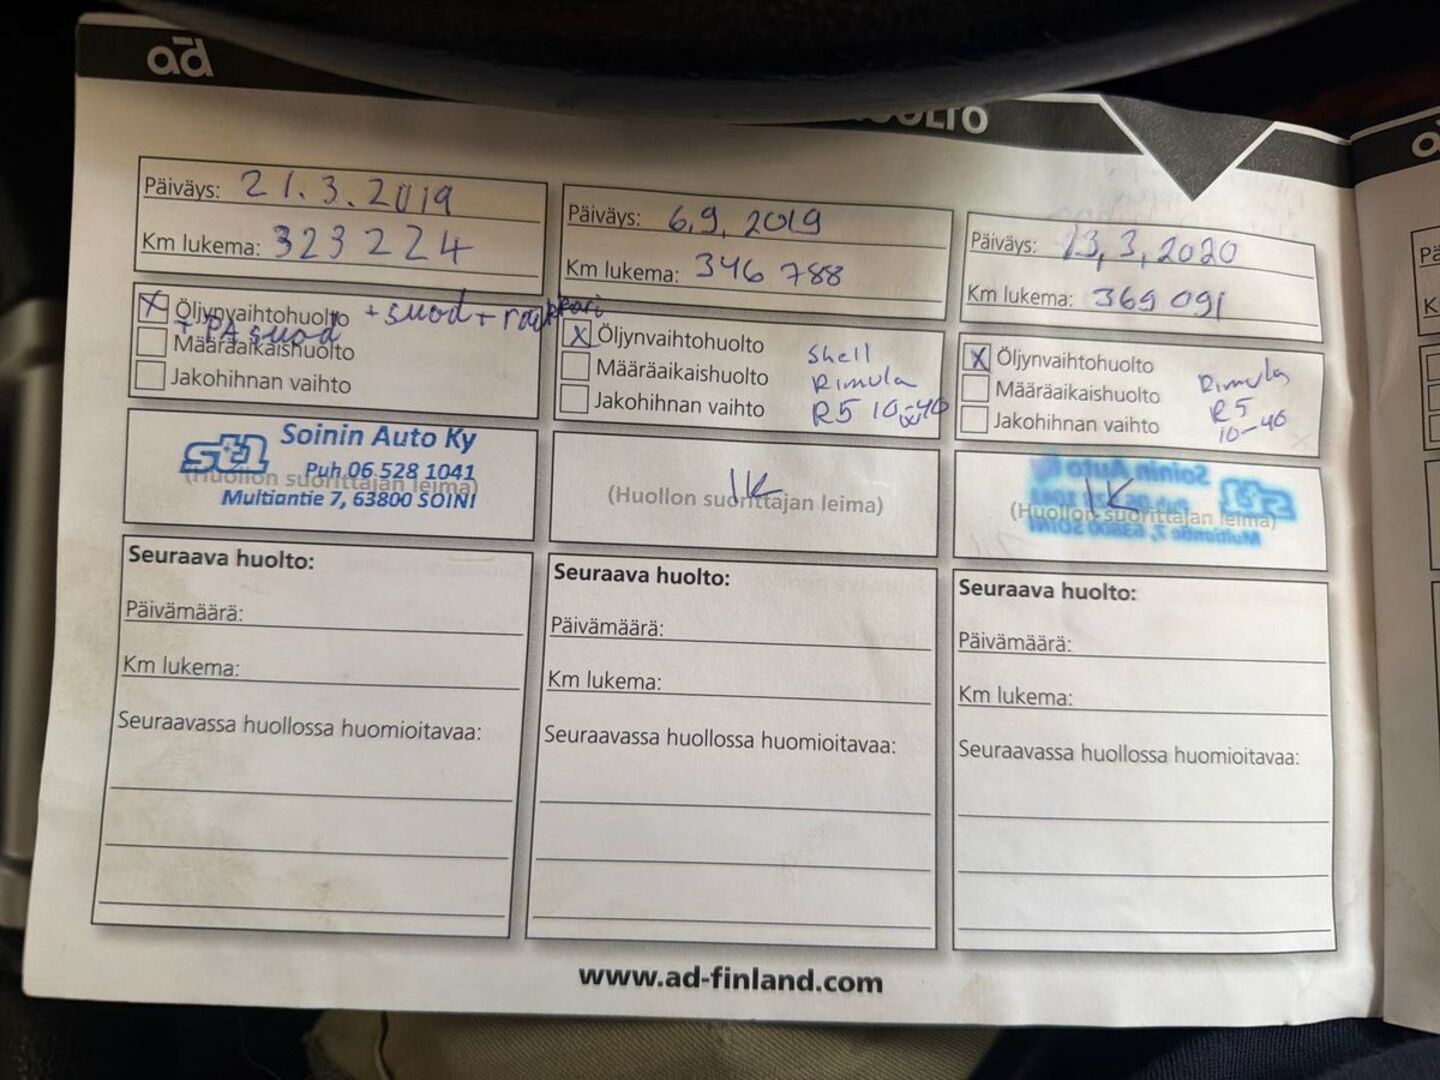 ad
HUOLTO
Päiväys: 21.3.2019
Km lukema: 323 224
X Öljynvaihtohuolto + suod + raikkari
+ PA suod
Määräaikaishuolto
Jakohihnan vaihto
st1 Soinin Auto Ky
Puh. 06 528 1041
(Huollon suorittajan leima)
Multiantie 7, 63800 SOINI
Seuraava huolto:
Päivämäärä:
Km lukema:
Seuraavassa huollossa huomioitavaa:
Päiväys: 6.9.2019
Km lukema: 346 788
X Öljynvaihtohuolto
Määräaikaishuolto
Jakohihnan vaihto
Shell
Rimula
R5 10w-40
IK
(Huollon suorittajan leima)
Seuraava huolto:
Päivämäärä:
Km lukema:
Seuraavassa huollossa huomioitavaa:
Päiväys: 13,3,2020
Km lukema: 369 091
X Öljynvaihtohuolto
Määräaikaishuolto
Jakohihnan vaihto
Rimula
R5
10-40
st1 Soinin Auto Ky
Puh. 06 528 1041
IK
(Huollon suorittajan leima)
Multiantie 7, 63800 SOINI
Seuraava huolto:
Päivämäärä:
Km lukema:
Seuraavassa huollossa huomioitavaa:
www.ad-finland.com